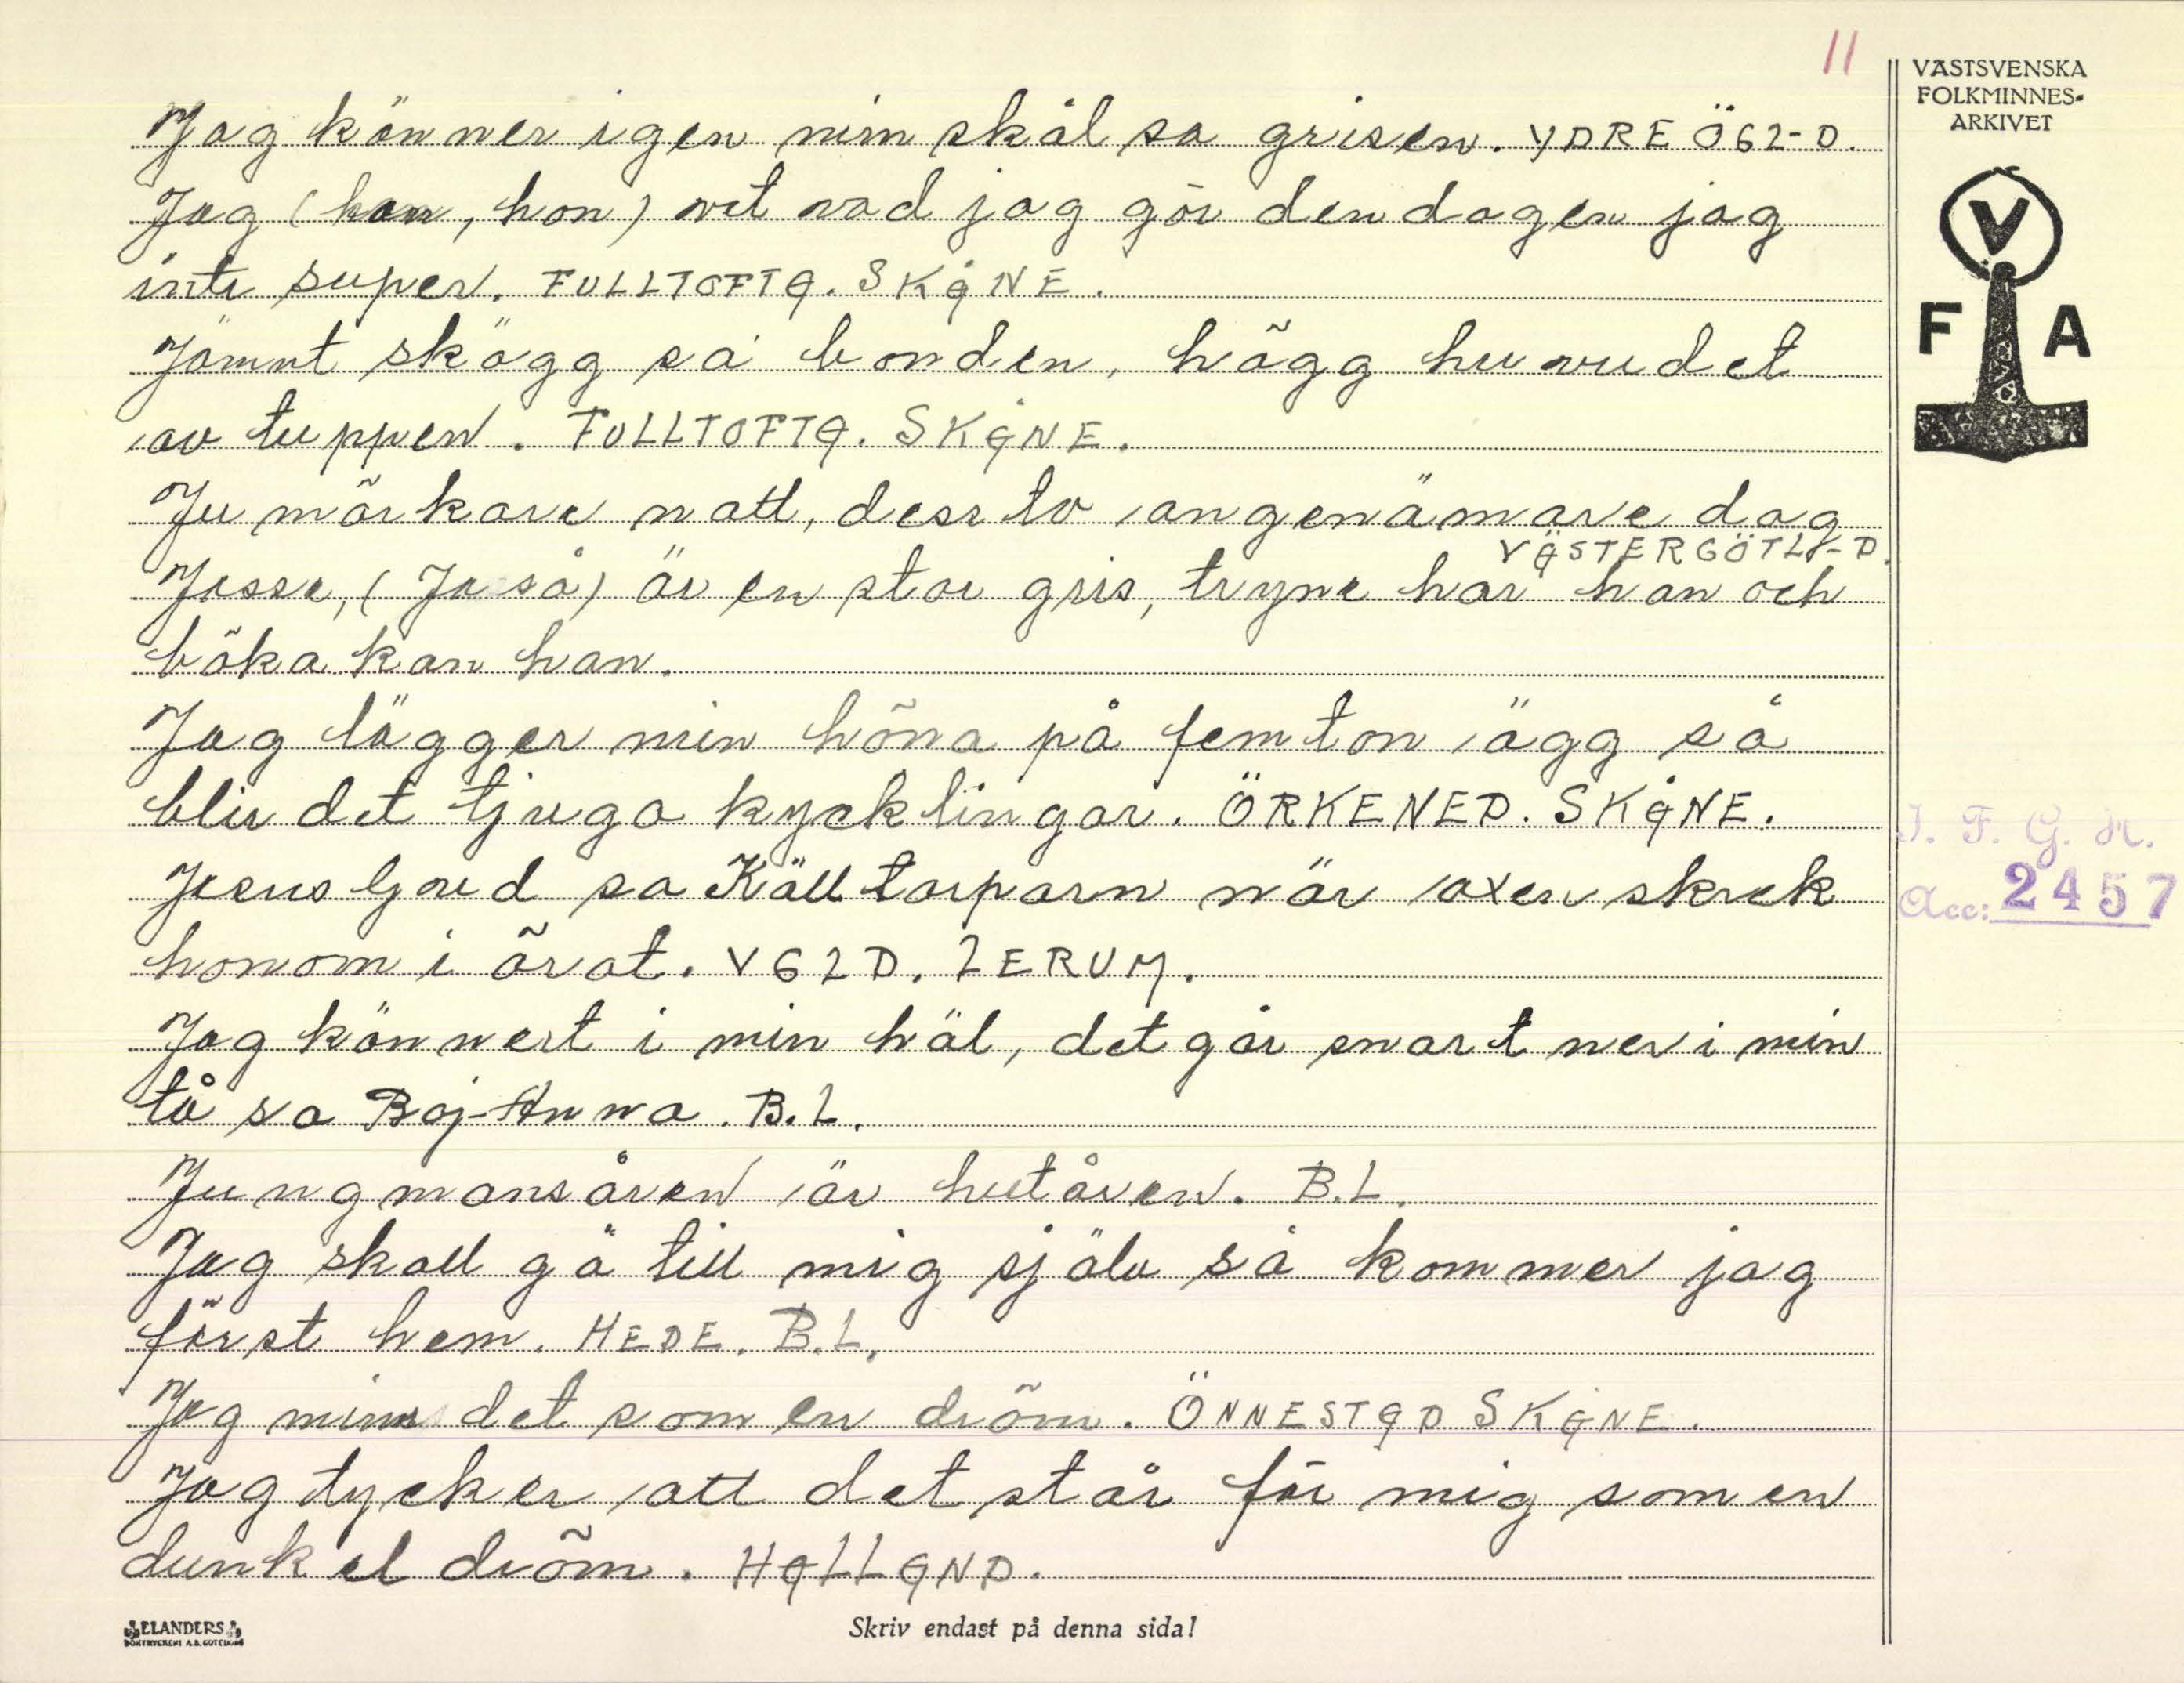 11
VÄSTSVENSKA
FOLKMINNES-
ARKIVET
V
F A
Jag känner igen min skål sa grisen. YDRE ÖGL-D.
Jag (han, hon) vet vad jag gör den dagen jag
inte super. FULLTOFTA. SKÅNE.
Jämnt skägg sa bonden, högg huvudet
av tuppen. FULLTOFTA. SKÅNE.
Ju mörkare natt, dess to angenämare dag
VÄSTERGÖTL-D.
Jasse, (Ja så) är en stor gris, tryne har han och
böka kan han.
Jag lägger min höna på femton ägg så
blir det tjugo kycklingar. ÖRKENED. SKÅNE.
I. F. G. H.
Acc: 2457
Jesus Gud sa Källtorparn när oxen skrek
honom i örat. VGLD. LERUM.
Jag kännert i min häl, det går snart ner i min
tå sa Boj-Anna. B.L.
Jungmansåren är hutåren. B.L.
Jag skall gå till mig själv så kommer jag
först hem. HEDE. B.L.
Jag minns det som en dröm. ÖNNESTAD SKÅNE.
Jag tycker att det står för mig som en
dunkel dröm. HALLAND.
ELANDERS
BOKTRYCKERI A.B. GÖTEBORG
Skriv endast på denna sida!